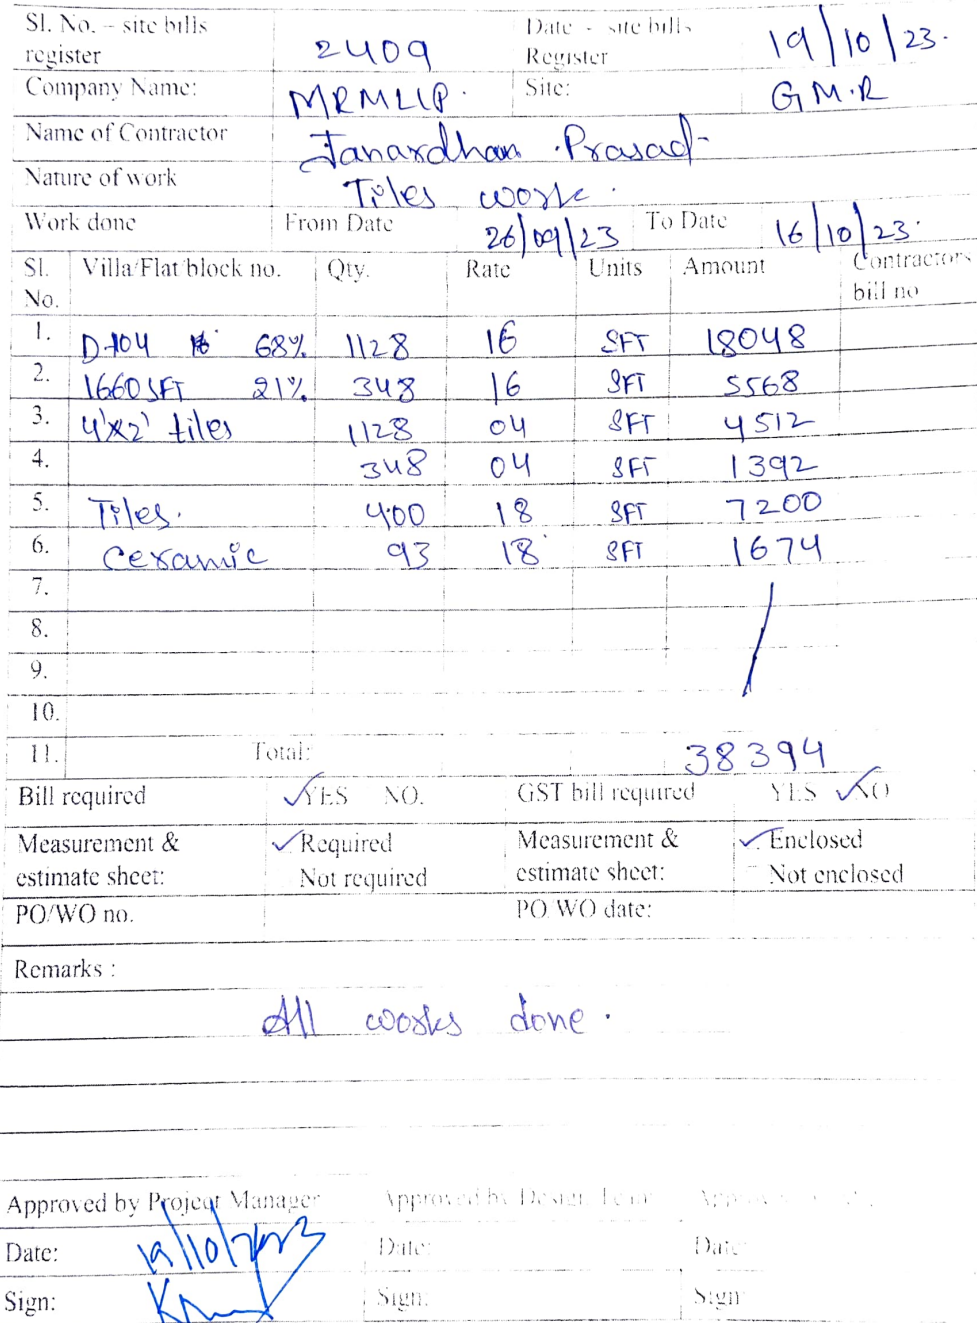 Sl. No. – site bills register 2409 Date - site bills Register 19/10/23.
Company Name: MRMLLP. Site: GM.R
Name of Contractor Janardhan Prasad
Nature of work Tiles work.
Work done From Date 26/09/23 To Date 16/10/23.
Sl. No. Villa/Flat/block no. Qty. Rate Units Amount Contractors bill no
1. D-104 68% 1128 16 SFT 18048
2. 1660 SFT 21% 348 16 SFT 5568
3. 4'x2' tiles 1128 04 SFT 4512
4. 348 04 SFT 1392
5. Tiles. 400 18 SFT 7200
6. Ceramic 93 18 SFT 1674
7.
8.
9.
10.
11. Total: 38394
Bill required ✓YES NO. GST bill required YES ✓NO
Measurement & estimate sheet: ✓Required Not required Measurement & estimate sheet: ✓Enclosed Not enclosed
PO/WO no. PO WO date:
Remarks :
All works done.
Approved by Project Manager Approved by Design Team
Date: 19/10/2023 Date: Date:
Sign: Sign: Sign